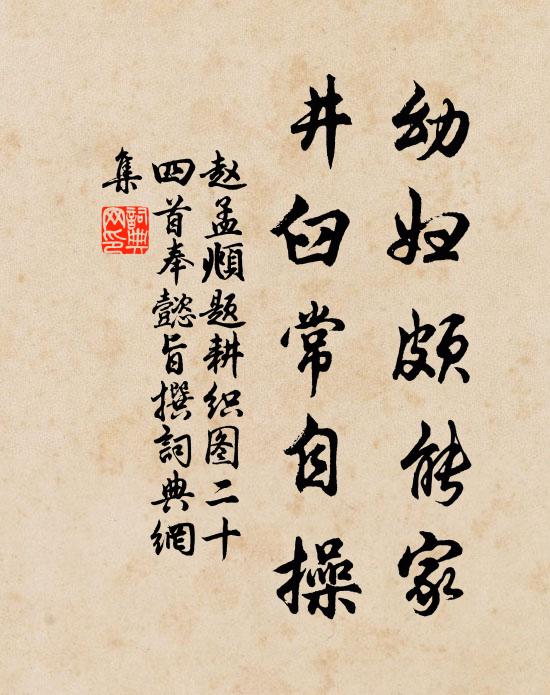 幼妇颇能家
井臼常自操
赵孟頫题耕织图二十
四首奉懿旨撰詞典網
集
詞典網印